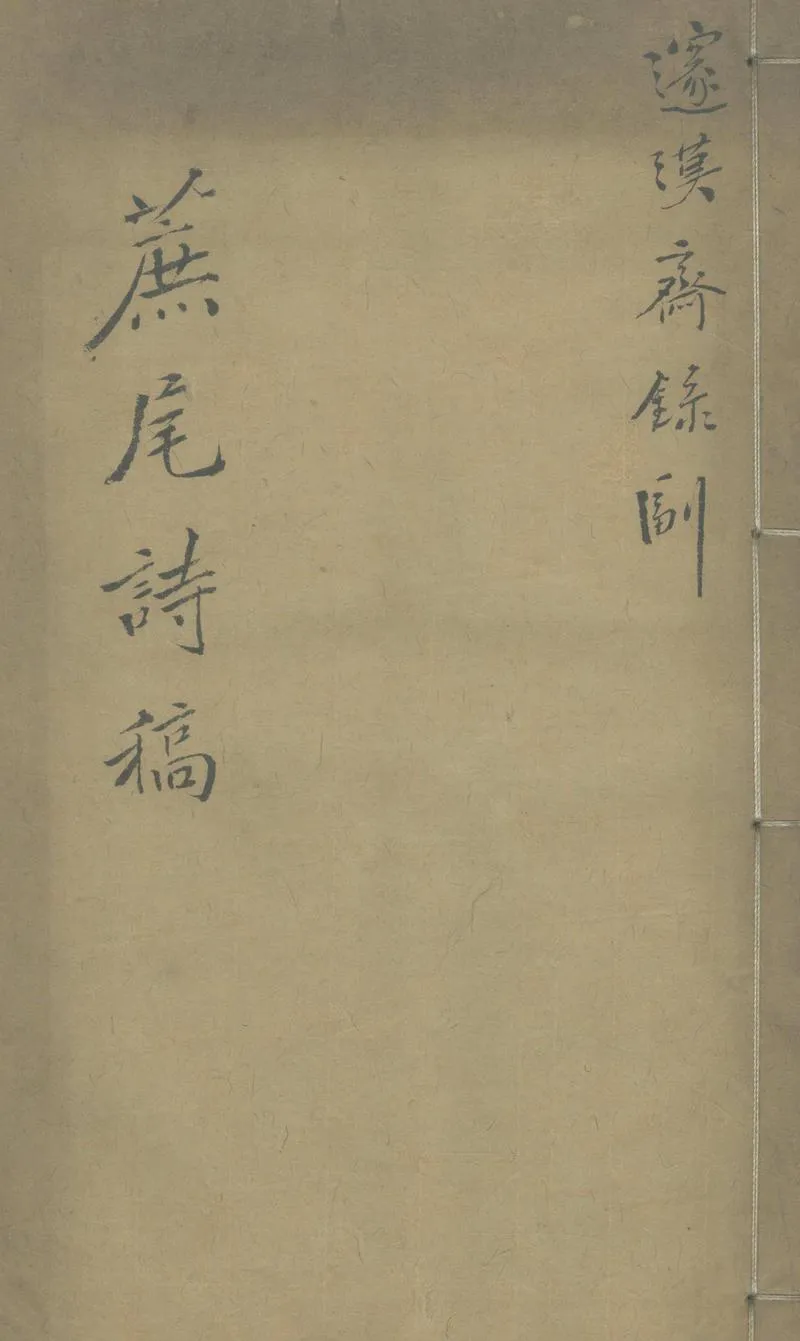 邃漢齋錄副
蔗尾詩稿